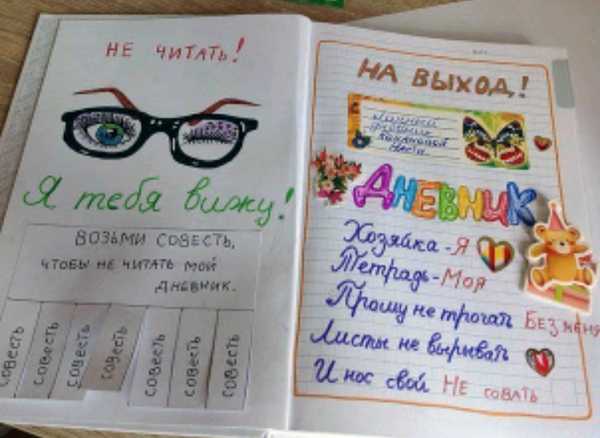 НЕ ЧИТАТЬ!
Я тебя вижу!
ВОЗЬМИ СОВЕСТЬ,
ЧТОБЫ НЕ ЧИТАТЬ МОЙ
ДНЕВНИК.
СОВЕСТЬ
СОВЕСТЬ
СОВЕСТЬ
СОВЕСТЬ
СОВЕСТЬ
СОВЕСТЬ
СОВЕСТЬ
НА ВЫХОД!
Личный
дневник
ДНЕВНИК
Хозяйка - Я
Тетрадь - Моя
Прошу не трогать БЕЗ МЕНЯ
Листы не вырывать
И нос свой НЕ СОВАТЬ